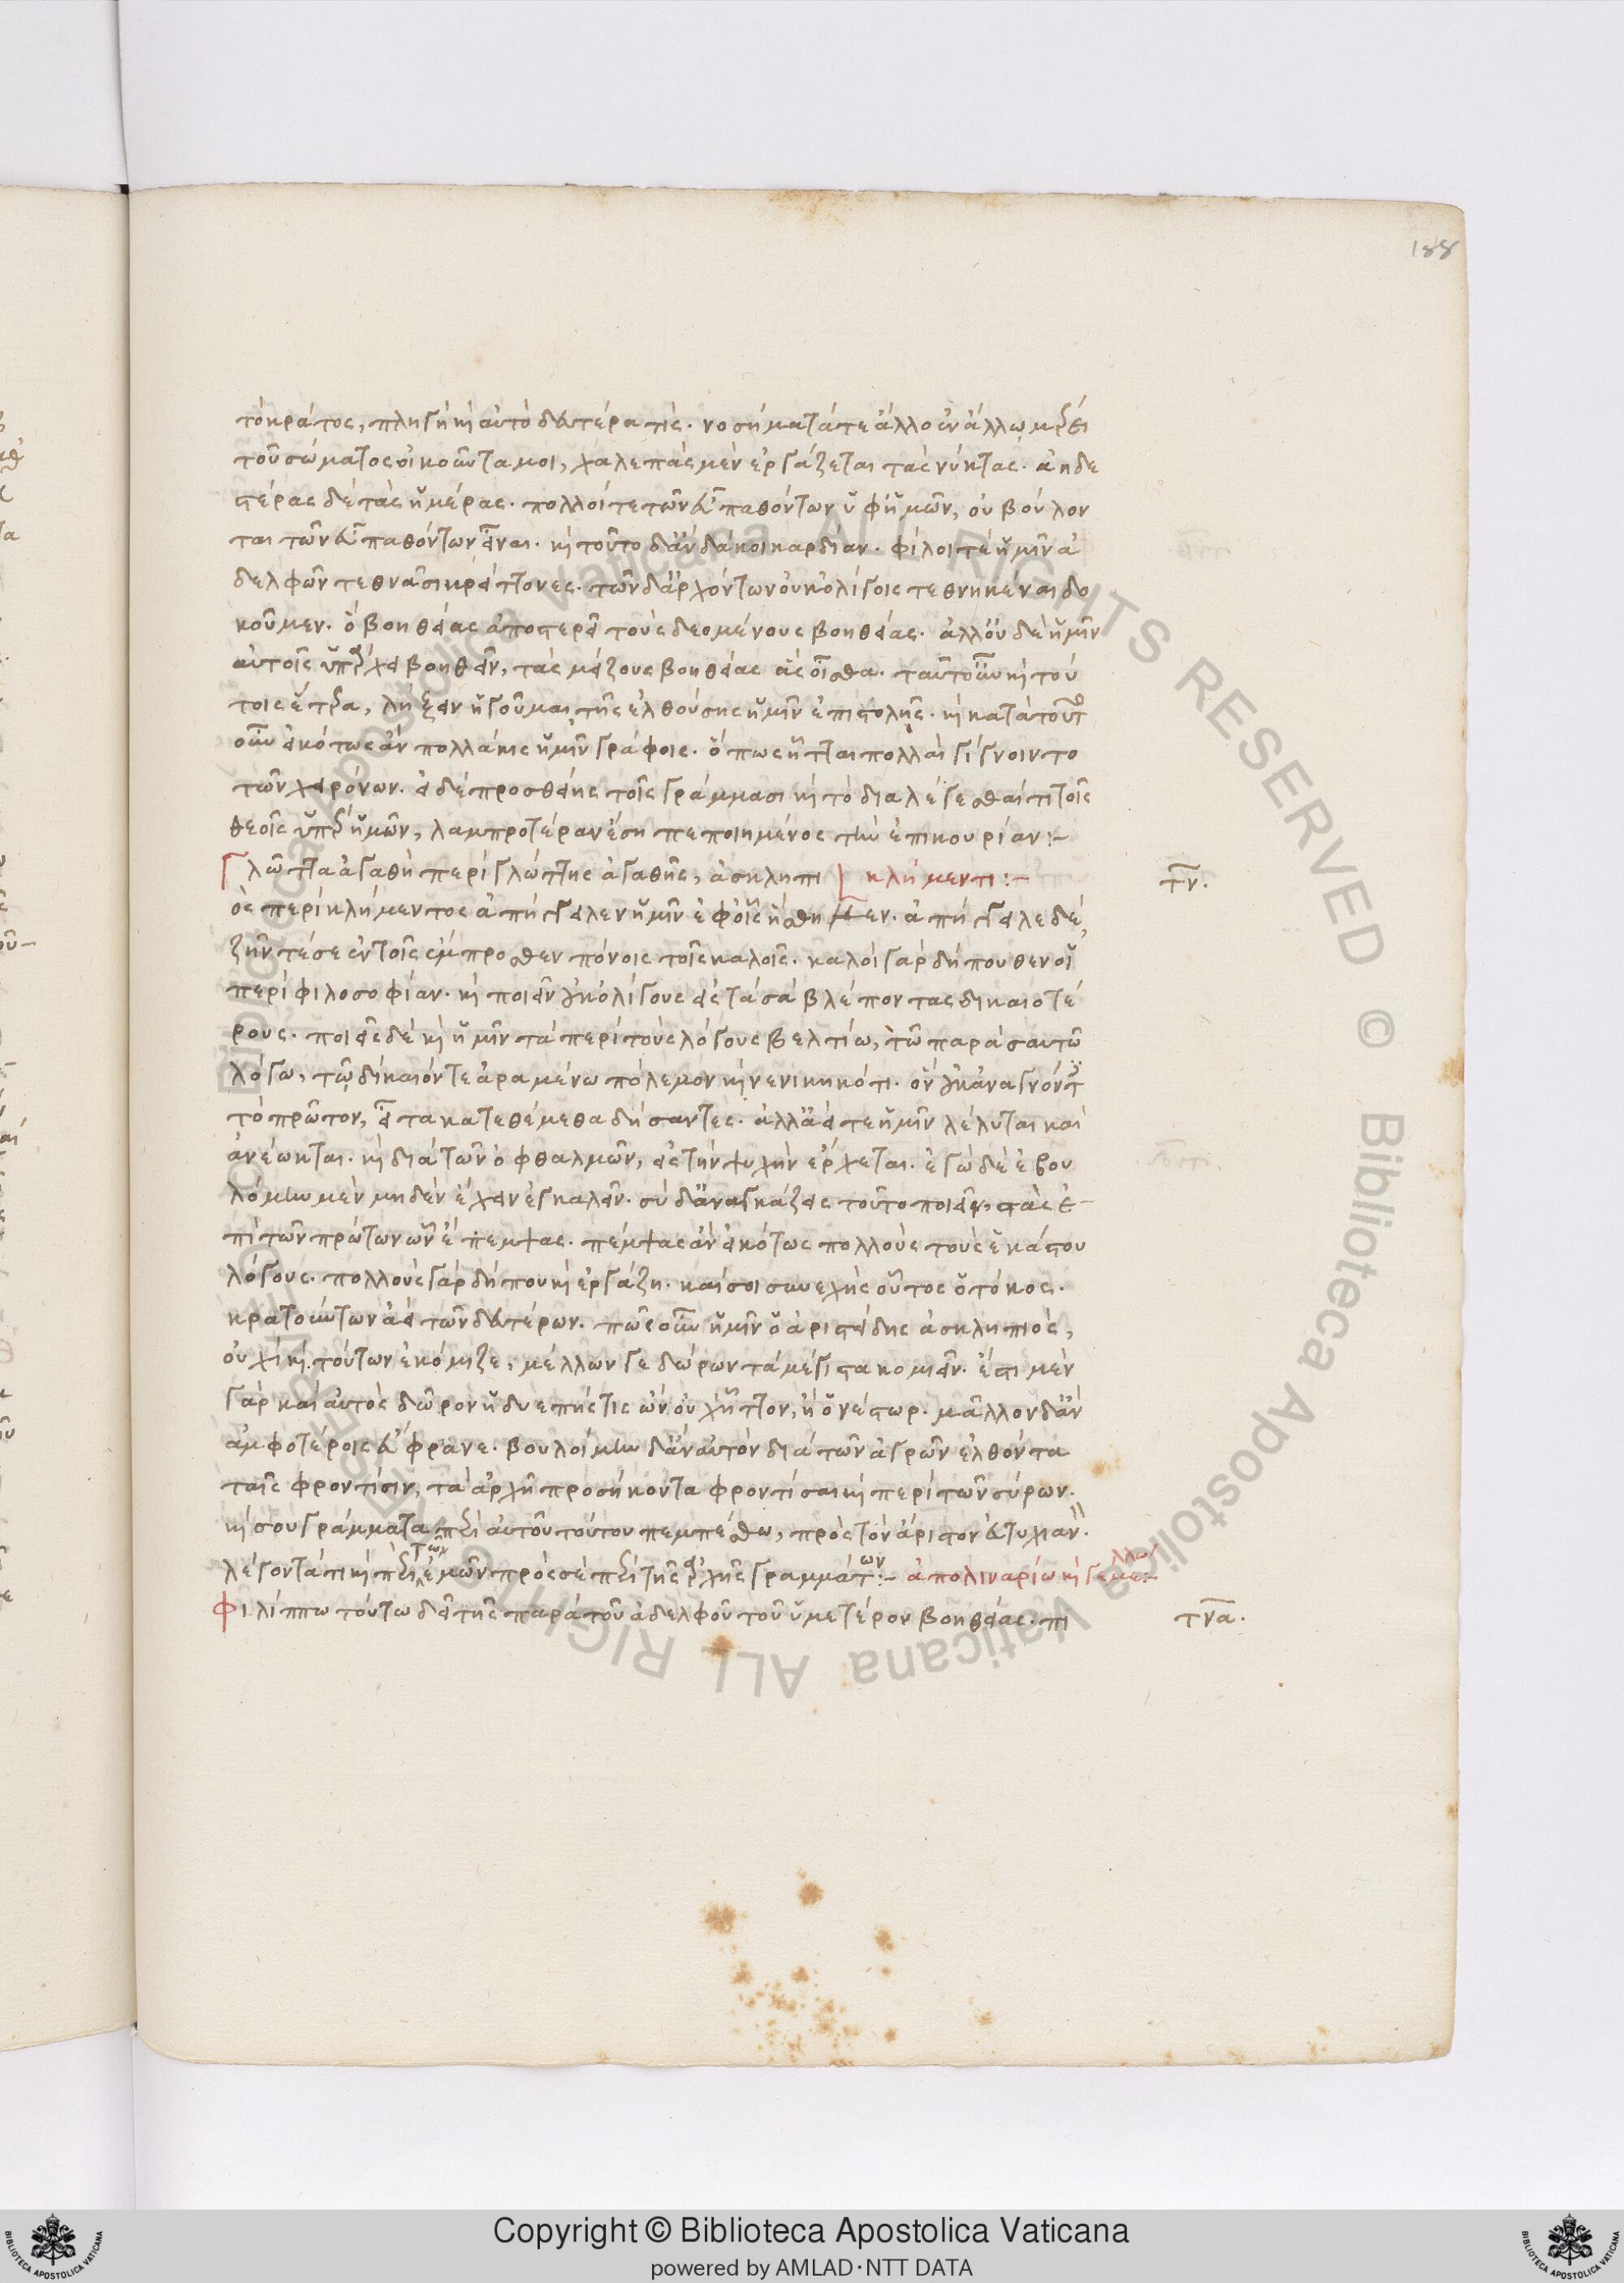 188
τὸ κράτος, πληγὴ καὶ αὐτὸ δευτέρα τις. νοσήματά τε ἄλλο ἐν ἄλλῳ μέρει
τοῦ σώματος οἰκοῦντα μοι, χαλεπὰς μὲν ἐργάζεται τὰς νύκτας. ἀηδε
στέρας δὲ τὰς ἡμέρας. πολλοί τε τῶν εὖ παθόντων ὑφ' ἡμῶν, οὐ βούλον
ται τῶν εὖ παθόντων εἶναι. καὶ τοῦτο δ' ἂν δάκοι καρδίαν. φίλοι τὲ ἡμῖν ἀ
δελφῶν τεθνᾶσι κρείττονες. τῶν δ' ἀρχόντων οὐκ ὀλίγοις τεθνηκέναι δο
κοῦμεν. ὃ βοηθείας ἀποστερεῖ τοὺς δεομένους βοηθείας. ἀλλ' οὐδὲ ἡμῖν
αὐτοῖς ὑπάρχει βοηθεῖν, τὰς μείζους βοηθείας ἃς οἶσθα. ταῦτ' οὖν καὶ τού
τοις ἕτερα, λήξειν ἡγοῦμαι τῆς ἐλθούσης ἡμῖν ἐπιστολῆς. καὶ κατὰ τοῦτο
οὖν εἰκότως ἂν πολλάκις ἡμῖν γράφοις. ὅπως ἧτται πολλαὶ γίγνοιντο
τῶν χειρόνων. εἰ δὲ προσθείης τοῖς γράμμασι καὶ τὸ διαλέγεσθαί τι τοῖς
θεοῖς ὑπὲρ ἡμῶν, λαμπροτέραν ἔσῃ πεποιημένος τὴν ἐπικουρίαν:-
Γλῶττα ἀγαθὴ περὶ γλώττης ἀγαθῆς, ἀσκληπι κλήμεντι:- τν.
ὸς περὶ κλήμεντος ἀπήγγειλεν ἡμῖν ἐφ' οἷς ἥσθημεν. ἀπήγγειλε δέ,
ζῆν τέ σε ἐν τοῖς ἔμπροσθεν πόνοις τοῖς καλοῖς. καλοὶ γὰρ δήπουθεν οἱ
περὶ φιλοσοφίαν. καὶ ποιεῖν οὐκ ὀλίγους εἰς τὰ σὰ βλέποντας δικαιοτέ
ρους. ποιεῖς δὲ καὶ ἡμῖν τὰ περὶ τοὺς λόγους βελτίω, τῶ παρὰ σαυτοῦ
λόγω, τῷ δίκαιόν τε ἀραμένω πόλεμον καὶ νενικηκότι. ὃν οὐκ ἀναγνόντες
τὸ πρῶτον, εἶτα κατεθέμεθα δήσαντες. ἀλλ' ἀεί τε ἡμῖν λέλυται καὶ
ἀνέωκται. καὶ διὰ τῶν ὀφθαλμῶν, εἰς τὴν ψυχὴν ἔρχεται. ἐγὼ δὲ ἐβου
λόμην μὲν μηδὲν ἔχειν ἐγκαλεῖν. σὺ δ' ἀναγκάζεις τοῦτο ποιεῖν, στὰς ἐ-
πὶ τῶν πρώτων ὧν ἔπεμψας. πέμψας ἂν εἰκότως πολλοὺς τοὺς ἑκάστου
λόγους. πολλοὺς γὰρ δήπου καὶ ἐργάζη. καί σοι συνεχὴς οὗτος ὁ τόκος.
κρατούντων ἀεὶ τῶν δευτέρων. πῶς οὖν ἡμῖν ὁ ἀριστείδης ἀσκληπιὸς,
οὐχὶ καὶ τούτων ἐκόμιζε, μέλλων γε δώρων τὰ μέγιστα κομιεῖν. ἔστι μὲν
γὰρ καὶ αὐτὸς δῶρον ἡδυεπής τις ὢν οὐχ ἧττον, ἢ ὁ νέστωρ. μᾶλλον δ' ἂν
ἀμφοτέροις εὔφρανε. βουλοίμην δ' ἂν αὐτὸν διὰ τῶν ἀγρῶν ἐλθόντα
ταῖς φροντίσιν, τὰ ἀρχῆ προσήκοντα φροντίσαι καὶ περὶ τῶν σύρων.
καὶ σοῦ γράμματα περὶ αὐτοῦ τούτου πεμπέσθω, πρὸς τὸν ἄριστον εὐτυχιανόν.
λέγοντά τι καὶ περὶ τῶν ἐμῶν πρὸς σὲ περὶ τῆς ἀρχῆς γραμμάτων:- ἀπολιναρίω καὶ γεμέλλω:-
Φιλίππω τούτω δεῖ τῆς παρὰ τοῦ ἀδελφοῦ τοῦ ὑμετέρου βοηθείας. πι τνα.
Copyright © Biblioteca Apostolica Vaticana
powered by AMLAD·NTT DATA